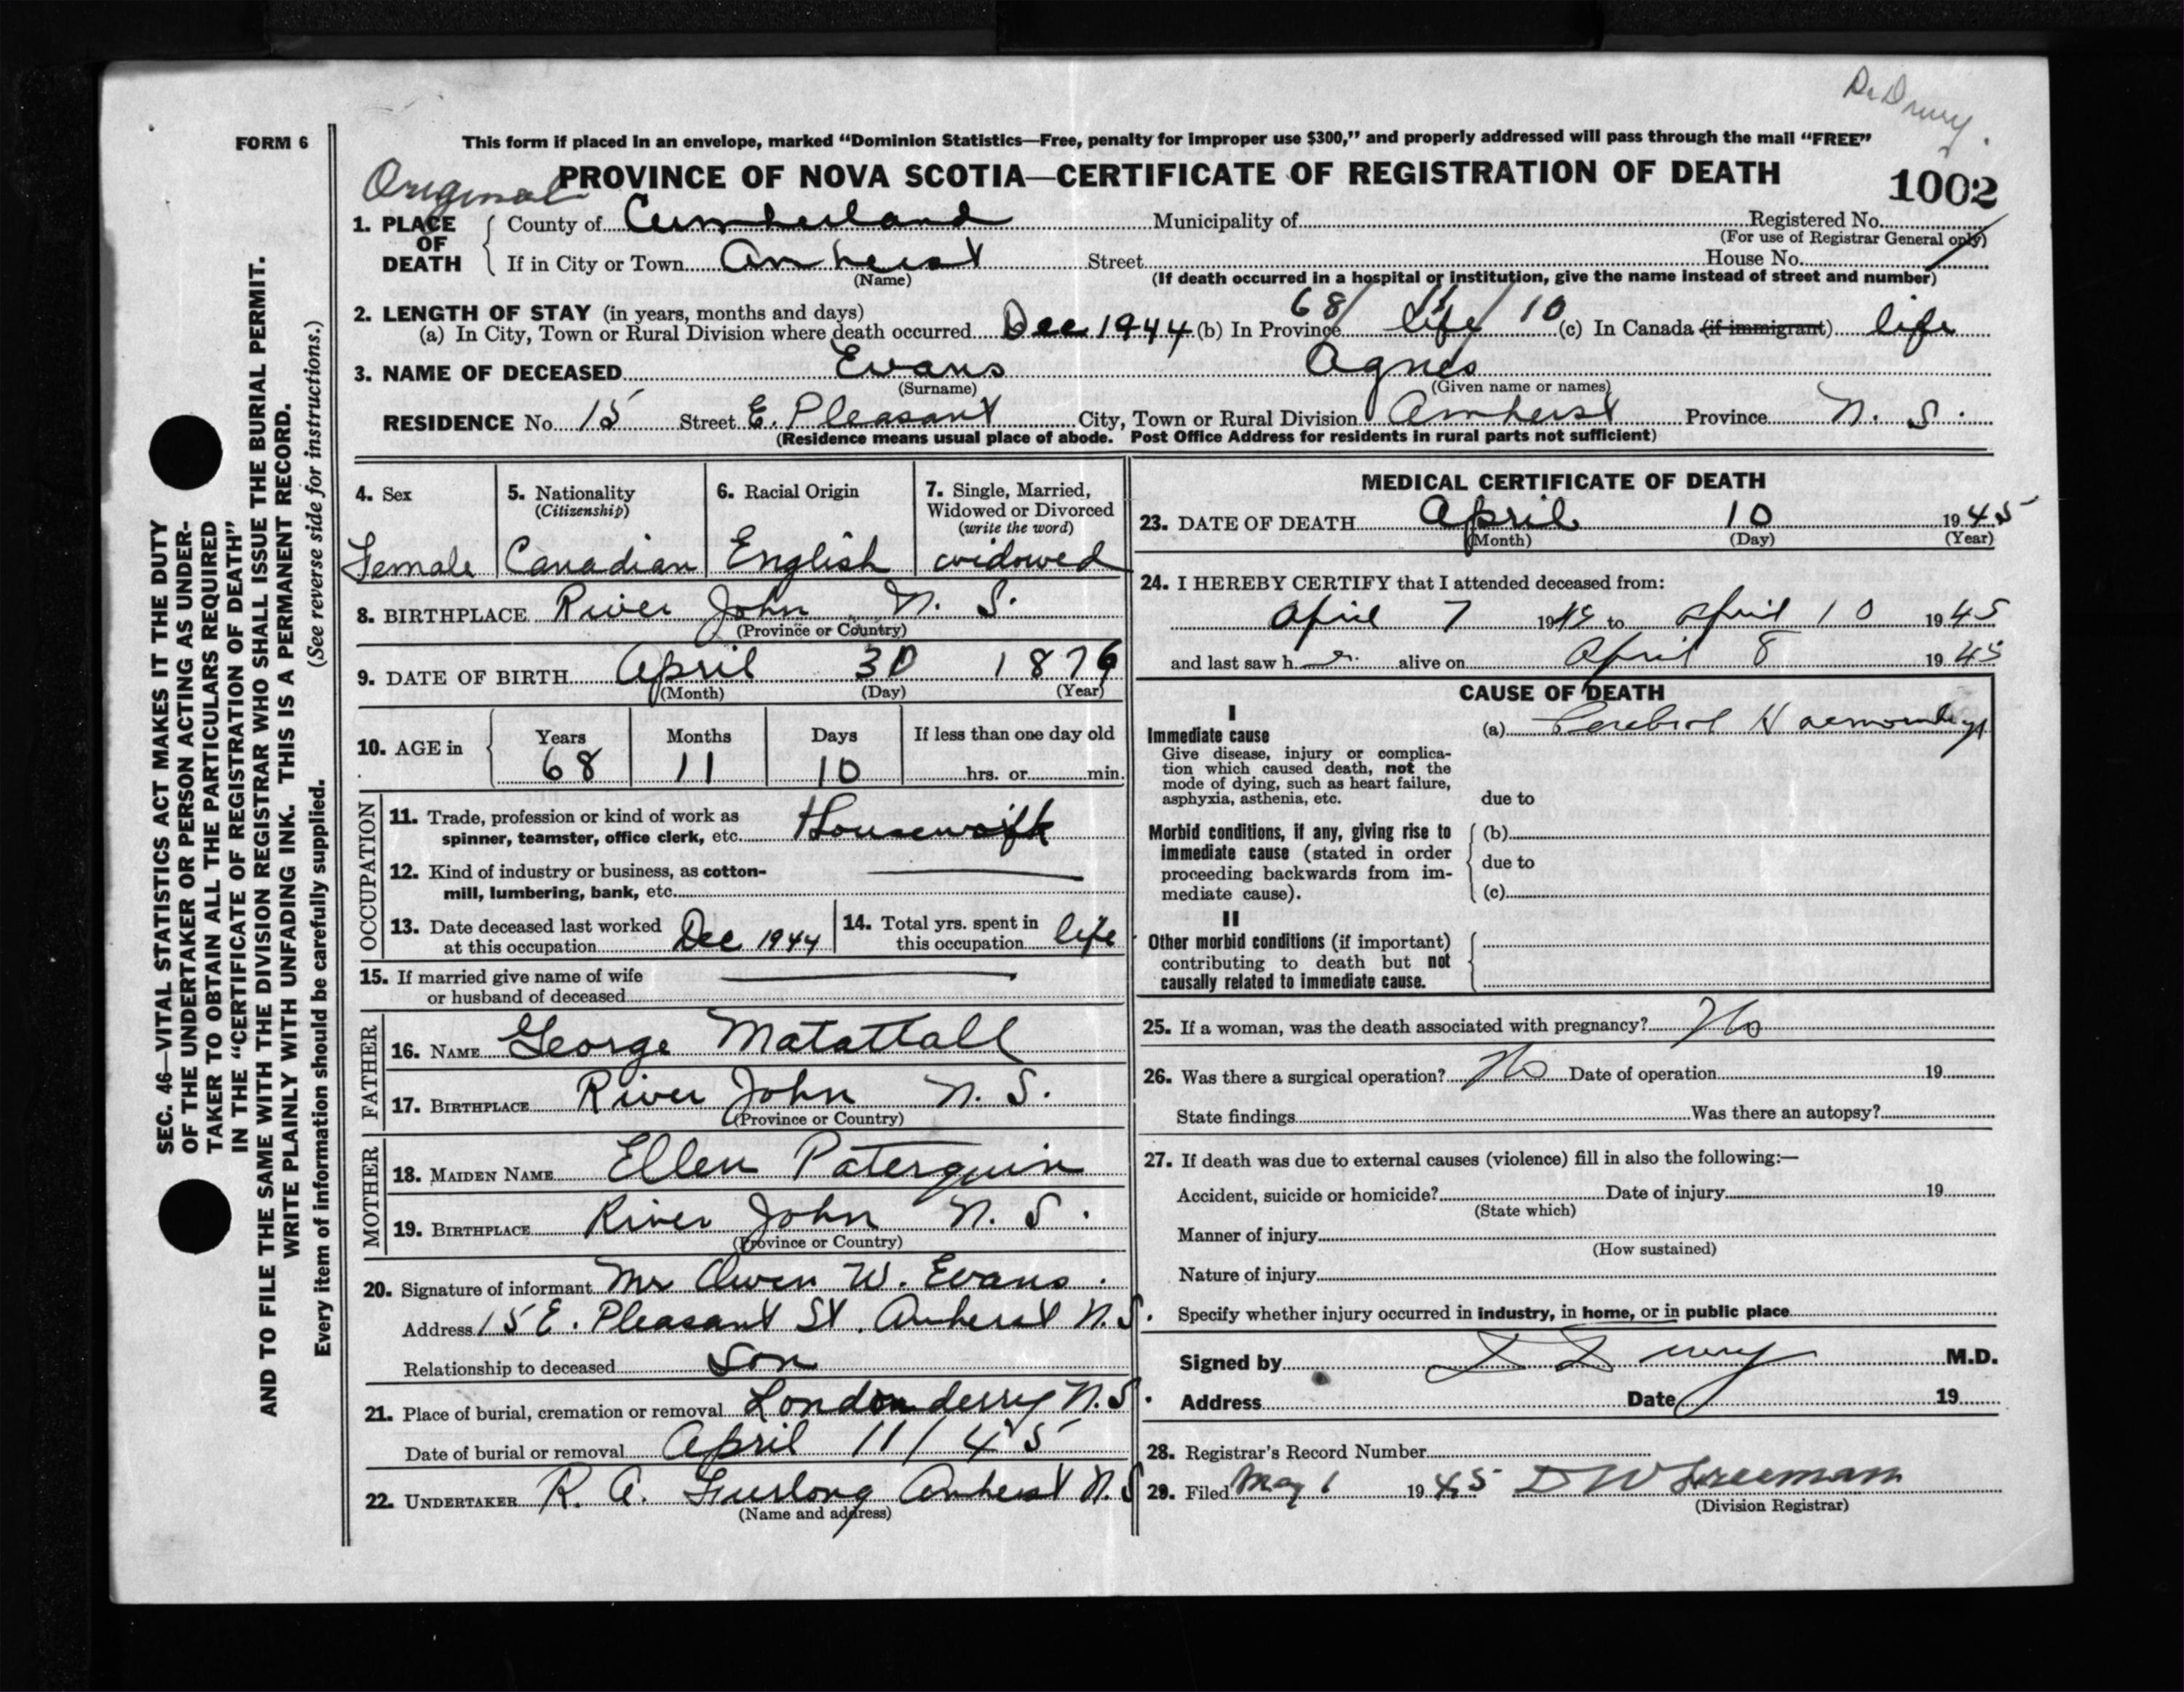 Dr Drury.
FORM 6
This form if placed in an envelope, marked “Dominion Statistics—Free, penalty for improper use $300,” and properly addressed will pass through the mail “FREE”
Original
PROVINCE OF NOVA SCOTIA—CERTIFICATE OF REGISTRATION OF DEATH
1002
1. PLACE OF DEATH { County of Cumberland Municipality of Registered No.
(For use of Registrar General only)
If in City or Town Amherst Street House No.
(Name) (If death occurred in a hospital or institution, give the name instead of street and number)
2. LENGTH OF STAY (in years, months and days) 68/ 11/ 10
(a) In City, Town or Rural Division where death occurred Dec 1944 (b) In Province life (c) In Canada (if immigrant) life
3. NAME OF DECEASED Evans Agnes
(Surname) (Given name or names)
RESIDENCE No. 15 Street E. Pleasant City, Town or Rural Division Amherst Province N. S.
(Residence means usual place of abode. Post Office Address for residents in rural parts not sufficient)
4. Sex
Female
5. Nationality
(Citizenship)
Canadian
6. Racial Origin
English
7. Single, Married,
Widowed or Divorced
(write the word)
widowed
8. BIRTHPLACE River John N. S.
(Province or Country)
9. DATE OF BIRTH April 30 1876
(Month) (Day) (Year)
10. AGE in { Years Months Days If less than one day old
68 11 10 hrs. or min.
OCCUPATION
11. Trade, profession or kind of work as
spinner, teamster, office clerk, etc. Housewife
12. Kind of industry or business, as cotton-
mill, lumbering, bank, etc.
13. Date deceased last worked
at this occupation Dec 1944
14. Total yrs. spent in
this occupation life
15. If married give name of wife
or husband of deceased
FATHER
16. NAME George Matattall
17. BIRTHPLACE River John N. S.
(Province or Country)
MOTHER
18. MAIDEN NAME Ellen Paterquin
19. BIRTHPLACE River John N. S.
(Province or Country)
20. Signature of informant Mr Owen W. Evans.
Address 15 E. Pleasant St. Amherst N.S.
Relationship to deceased Son
21. Place of burial, cremation or removal Londonderry N.S.
Date of burial or removal April 11/45
22. UNDERTAKER R. A. Furlong Amherst N.S
(Name and address)
MEDICAL CERTIFICATE OF DEATH
23. DATE OF DEATH April 10 1945
(Month) (Day) (Year)
24. I HEREBY CERTIFY that I attended deceased from:
April 7 1945 to April 10 1945
and last saw h er alive on April 8 1945
CAUSE OF DEATH
I
Immediate cause
Give disease, injury or complica-
tion which caused death, not the
mode of dying, such as heart failure,
asphyxia, asthenia, etc.
(a) Cerebral Haemorrhage
due to
Morbid conditions, if any, giving rise to
immediate cause (stated in order
proceeding backwards from im-
mediate cause).
(b)
due to
(c)
II
Other morbid conditions (if important)
contributing to death but not
causally related to immediate cause.
25. If a woman, was the death associated with pregnancy? No
26. Was there a surgical operation? No Date of operation 19
State findings Was there an autopsy?
27. If death was due to external causes (violence) fill in also the following:—
Accident, suicide or homicide? Date of injury 19
(State which)
Manner of injury
(How sustained)
Nature of injury
Specify whether injury occurred in industry, in home, or in public place
Signed by D Drury M.D.
Address Date 19
28. Registrar's Record Number
29. Filed May 1 1945 D W Freeman
(Division Registrar)
SEC. 46—VITAL STATISTICS ACT MAKES IT THE DUTY
OF THE UNDERTAKER OR PERSON ACTING AS UNDER-
TAKER TO OBTAIN ALL THE PARTICULARS REQUIRED
IN THE “CERTIFICATE OF REGISTRATION OF DEATH”
AND TO FILE THE SAME WITH THE DIVISION REGISTRAR WHO SHALL ISSUE THE BURIAL PERMIT.
WRITE PLAINLY WITH UNFADING INK. THIS IS A PERMANENT RECORD.
Every item of information should be carefully supplied. (See reverse side for instructions.)